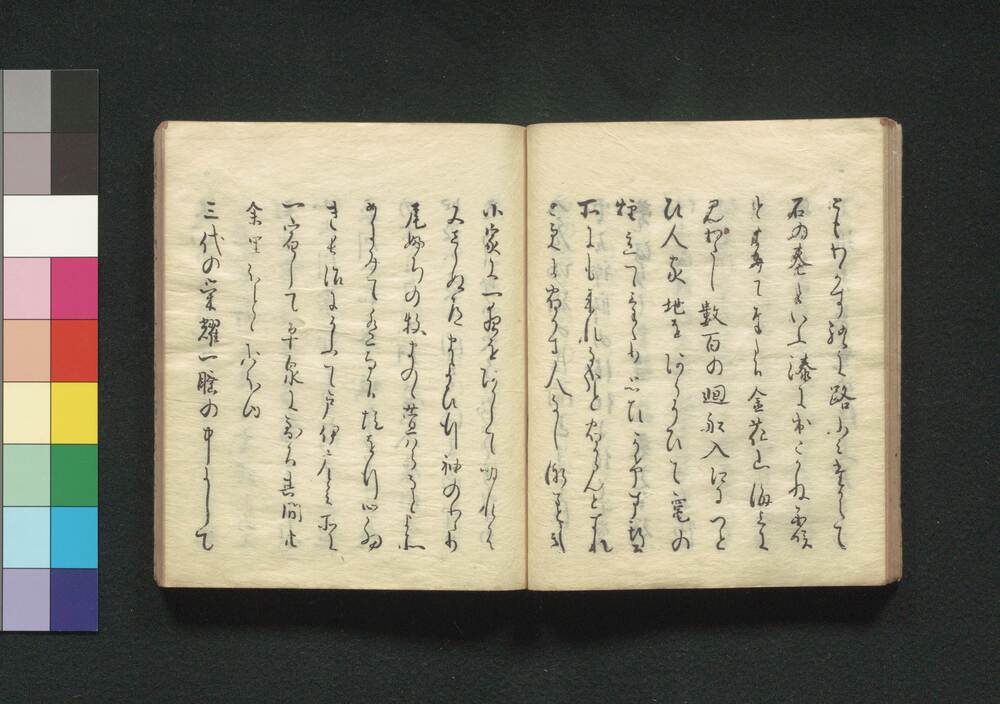 ともわかす終に路ふみたかえて
石の巻といふ湊に出こかね花咲
とよみて奉たる金花山海上に
見わたし数百の廻船入江につと
ひ人家地をあらそひて竈の
煙立つゝけたり思ひかけす斯る
所にも来れる哉と宿からんとすれ
と更に宿かす人なし漸まとしき
小家に一夜をあかして明れは
又しらぬ道まよひ行袖のわたり
尾ふちの牧まのゝ萱はらなとよそ
めにみて遥なる堤を行心細
き長沼にそふて戸伊摩と云所に
一宿して平泉に到る其間廿
余里ほとゝおほゆ
三代の栄耀一睡の中にして